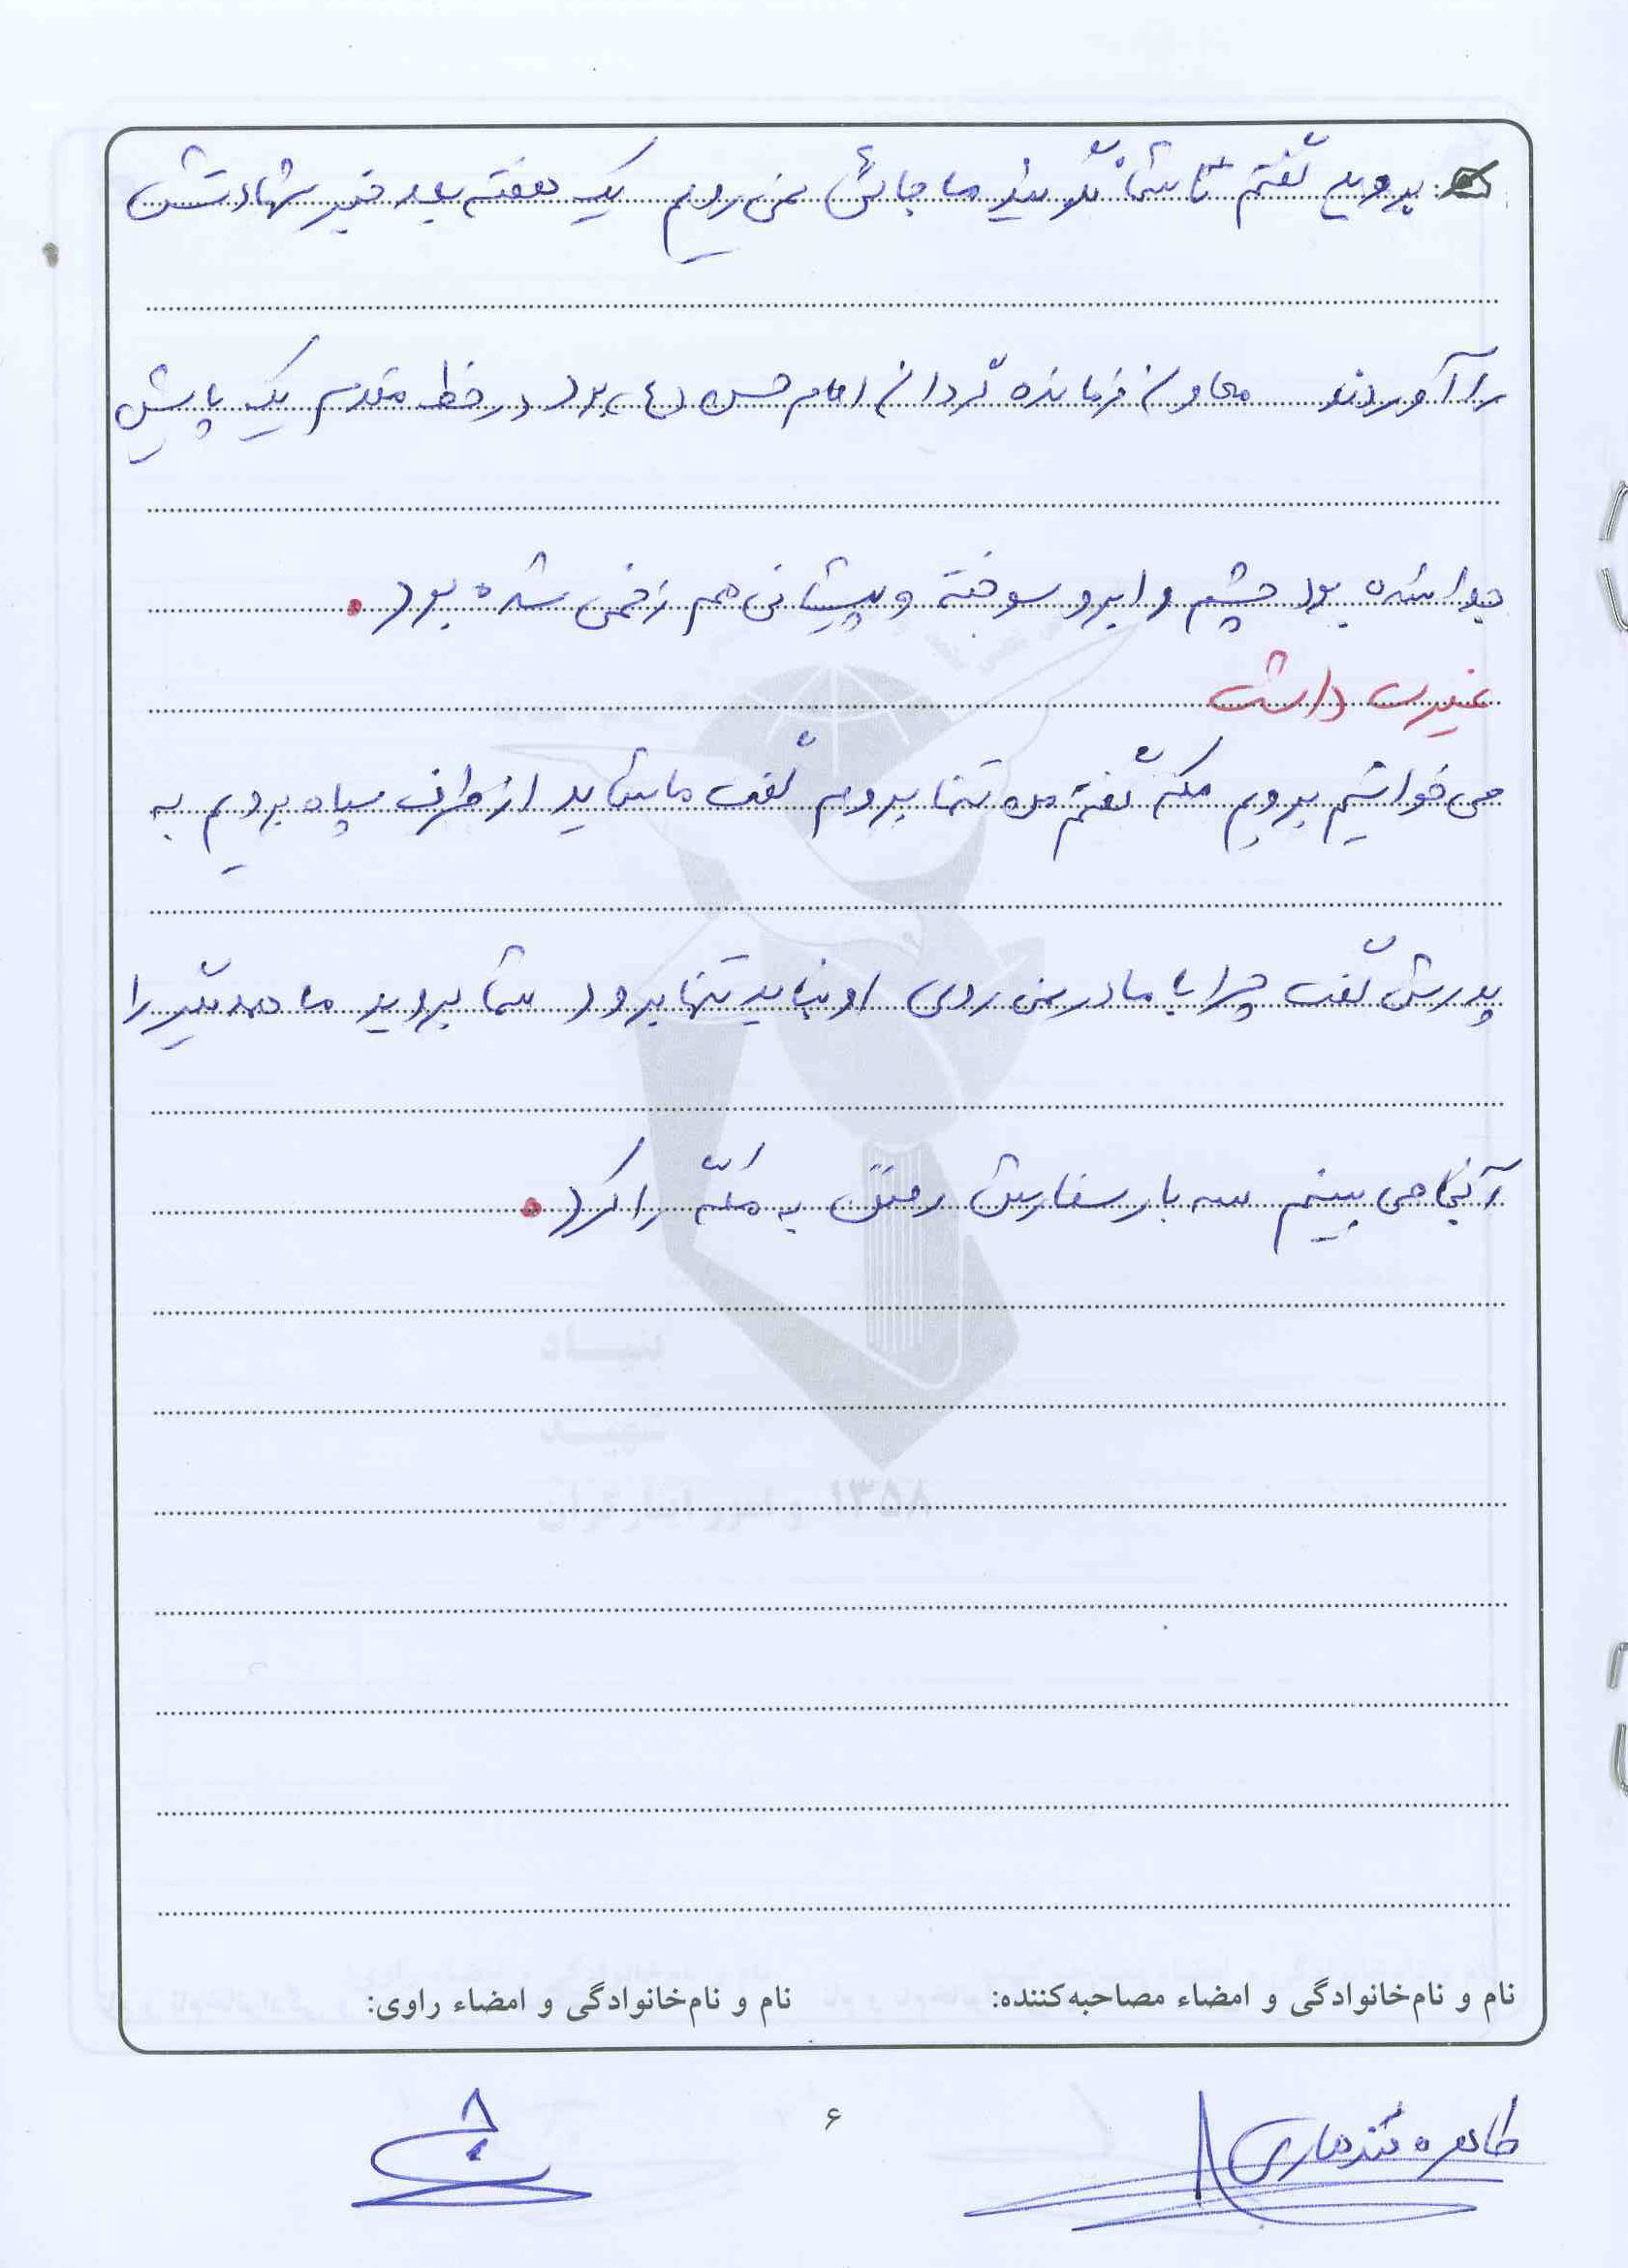 بروید گفتم تا شما نگویید ما جائی نمی رویم یک هفته بعد خبر شهادتش
را آوردند معاون فرمانده گردان امام حسن (ع) بود در خط مقدم یک پایش
جدا شده بود چشم و ابرو سوخته و پیشانی هم زخمی شده بود.
غیرت داشت
می خواستیم برویم مکه گفتم من تنها بروم گفت ما شاید از طرف سپاه برویم به
پدرش گفت چرا با مادر نمی روی او نباید تنها برود شما بروید ما همدیگر را
آنجا می بینیم سه بار سفارش رفتن به مکه را کرد.
بنیاد
شهید
۱۳۵۸ و امور ایثارگران
نام و نام‌خانوادگی و امضاء مصاحبه‌کننده: نام و نام‌خانوادگی و امضاء راوی:
طاهره قندهاری
۶